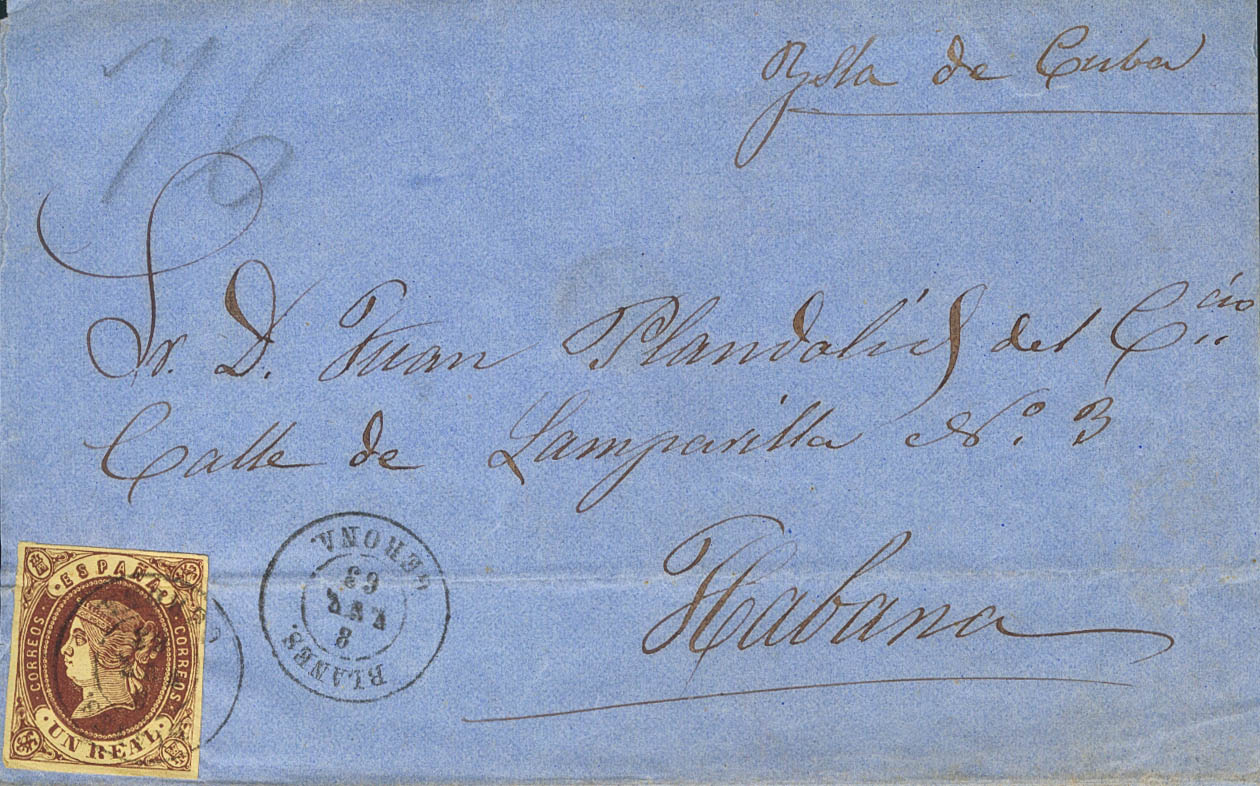 Ysla de Cuba
76
Sr. D. Juan Plandoliś del C.cio
Calle de Lamparilla No. 3
Habana
BLANES.
8
ENE
63
GERONA.
ESPAÑA
CORREOS
CORREOS
UN REAL